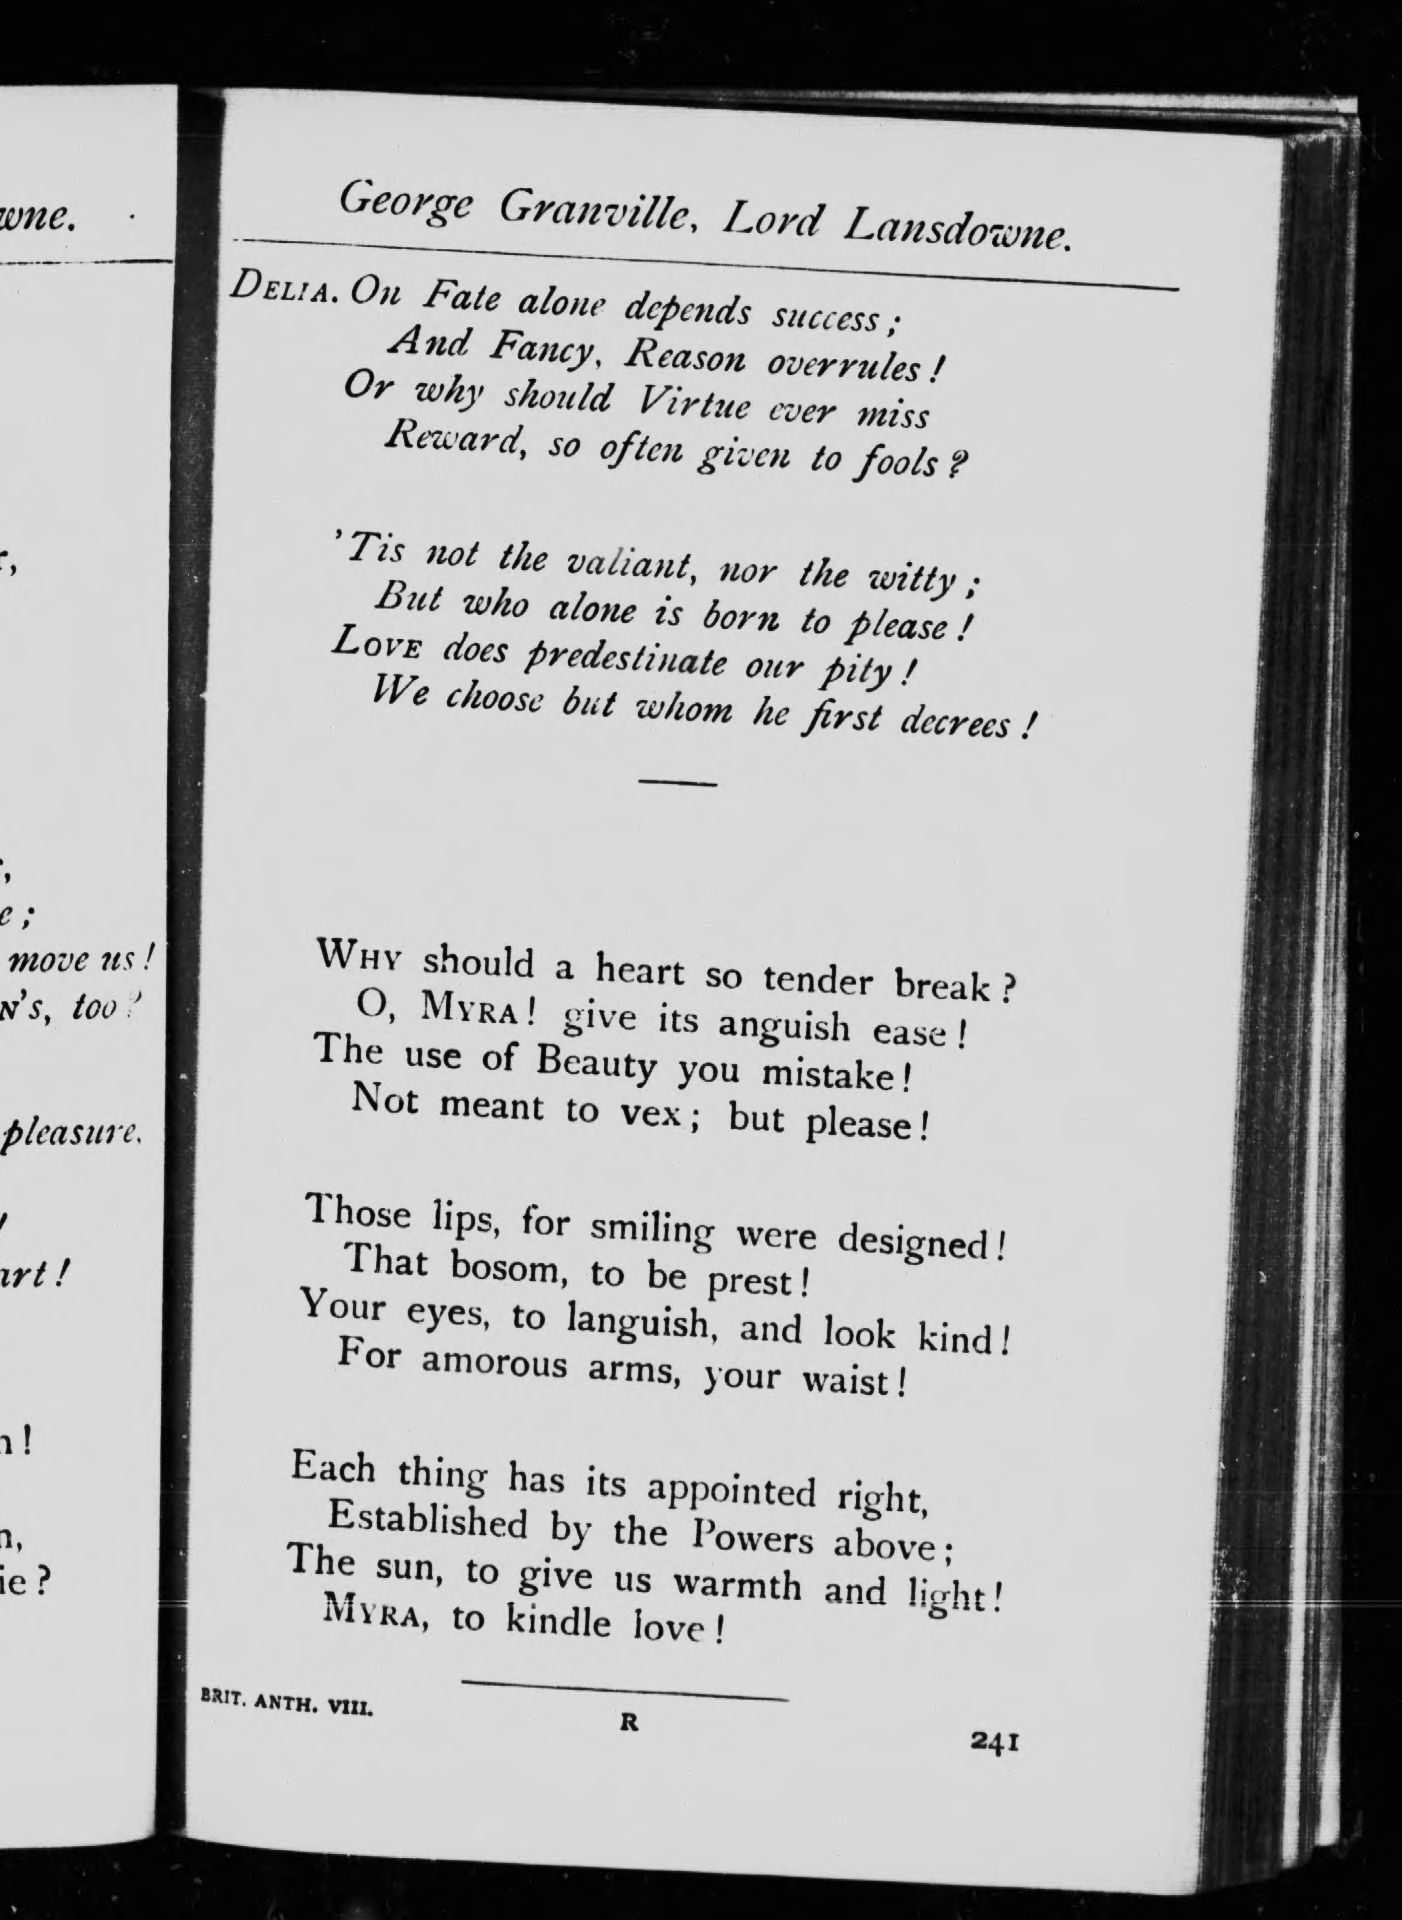 wne.
move us!
N's, too?
pleasure.
art!
n!
n,
ie?
George Granville, Lord Lansdowne.
DELIA. On Fate alone depends success;
And Fancy, Reason overrules!
Or why should Virtue ever miss
Reward, so often given to fools?
'Tis not the valiant, nor the witty;
But who alone is born to please!
LOVE does predestinate our pity!
We choose but whom he first decrees!
WHY should a heart so tender break?
O, MYRA! give its anguish ease!
The use of Beauty you mistake!
Not meant to vex; but please!
Those lips, for smiling were designed!
That bosom, to be prest!
Your eyes, to languish, and look kind!
For amorous arms, your waist!
Each thing has its appointed right,
Established by the Powers above;
The sun, to give us warmth and light!
MYRA, to kindle love!
BRIT. ANTH. VIII.
R
241